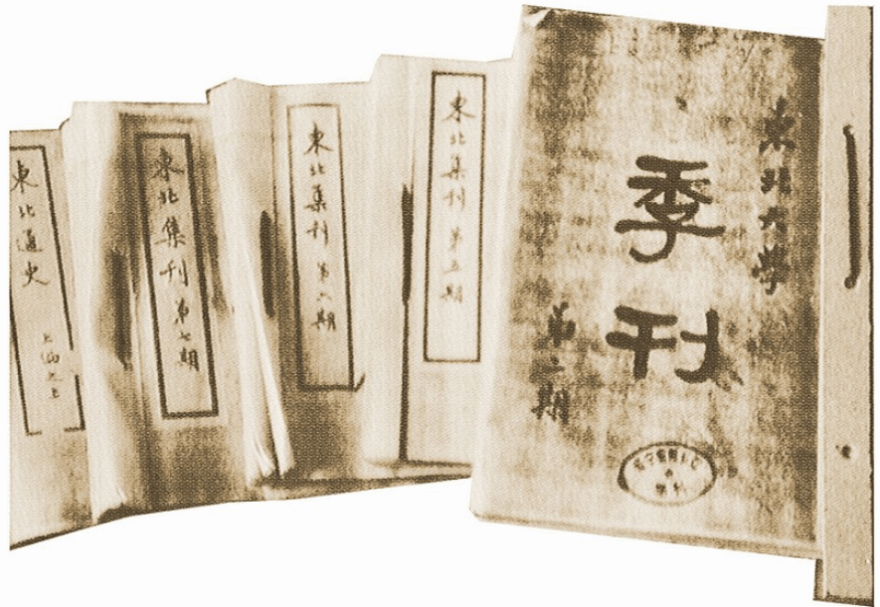 東北大學
季刊
第二期
東北集刊 第五期
東北集刊 第六期
東北集刊 第七期
東北通史
上編之上